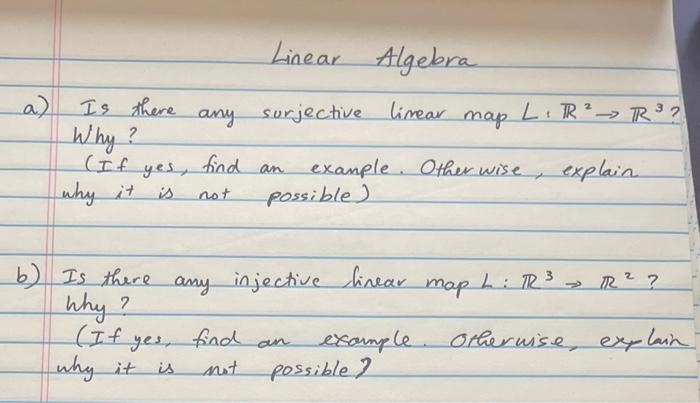 Linear Algebra
a) Is there any surjective linear map L: ℝ² → ℝ³?
Why?
(If yes, find an example. Otherwise, explain
why it is not possible)
b) Is there any injective linear map L: ℝ³ → ℝ²?
Why?
(If yes, find an example. Otherwise, explain
why it is not possible)